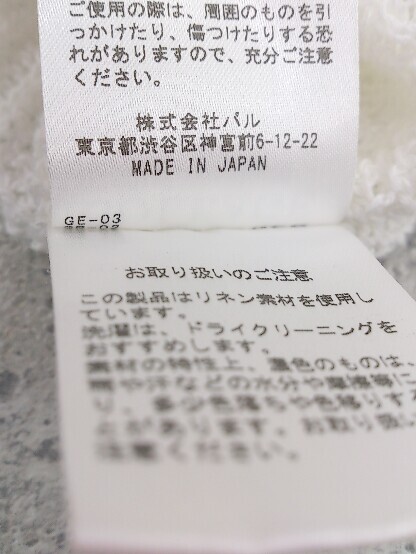 ご使用の際は、周囲のものを引
っかけたり、傷つけたりする恐
れがありますので、充分ご注意
ください。
株式会社パル
東京都渋谷区神宮前6-12-22
MADE IN JAPAN
GE-03
お取り扱いのご注意
この製品はリネン素材を使用し
ています。
洗濯は、ドライクリーニングを
おすすめします。
素材の特性上、濃色のものは、
雨や汗などの水分や摩擦等に
り、多少色落ちや色移りする
とがあります。お取り扱い
注意ください。